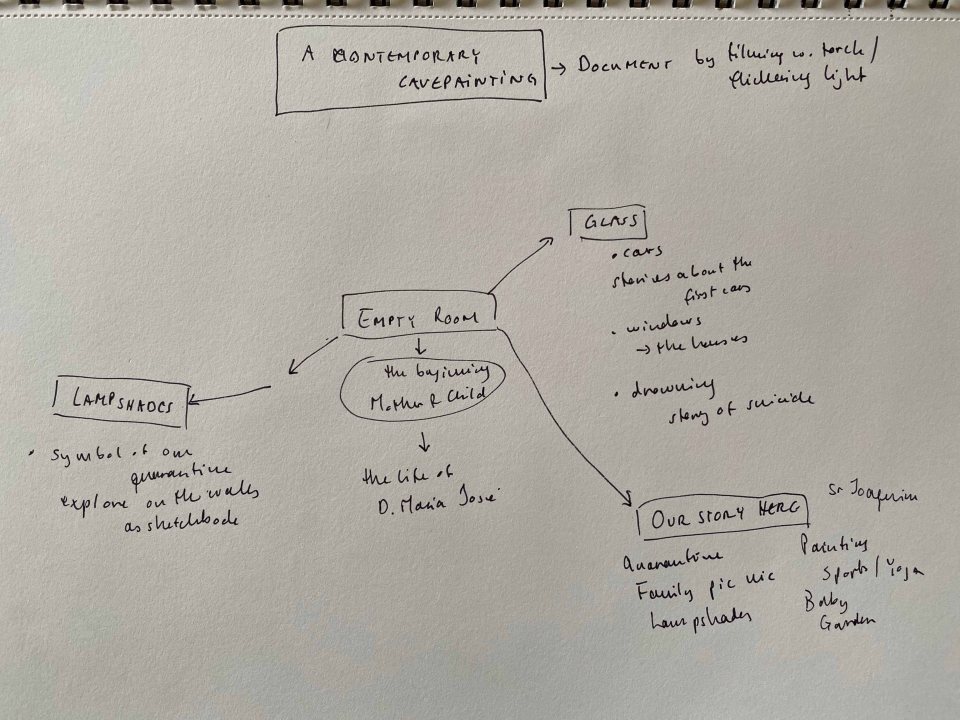 A CONTEMPORARY
CAVEPAINTING
→ DOCUMENT by filming w. torch /
flickering light
GLASS
• cars
stories about the
first cars
• windows
→ the houses
• drowning
story of suicide
EMPTY ROOM
the beginning
Mother & Child
the life of
D. Maria José
LAMPSHADES
• symbol of our
quarantine
explore on the walls
as sketchbook
OUR STORY HERE
Sr Joaquim
Quarantine
Family pic nic
Lampshades
Painting
Sports / Yoga
Baby
Garden